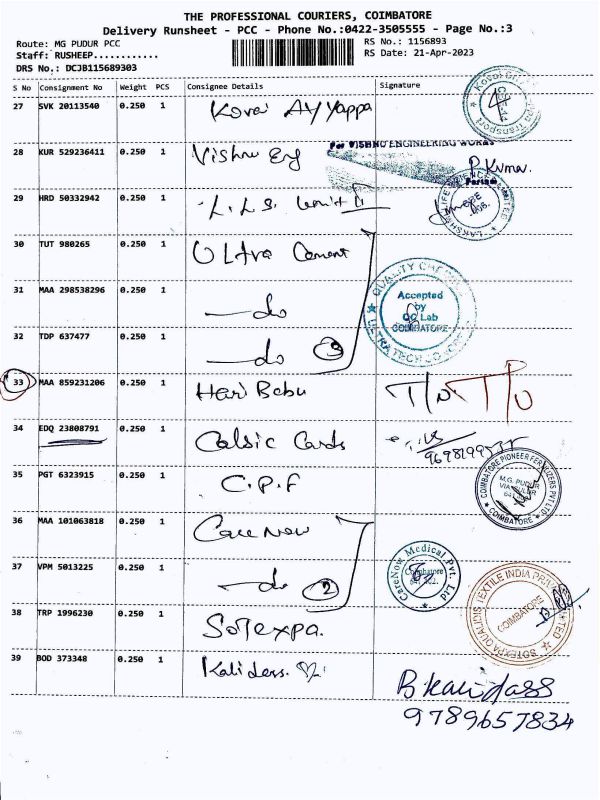 THE PROFESSIONAL COURIERS, COIMBATORE
Delivery Runsheet - PCC - Phone No.:0422-3505555 - Page No.:3
Route: MG PUDUR PCC
RS No.: 1156893
Staff: RUSHEEP............
RS Date: 21-Apr-2023
DRS No.: DCJB115689303
S No Consignment No Weight PCS Consignee Details Signature
27 SVK 20113540 0.250 1 Kovai Ayyappa
28 KUR 529236411 0.250 1 Vishnu Eng
For VISHNU ENGINEERING WORKS
P. Kumar
Partner
29 HRD 50332942 0.250 1
30 TUT 980265 0.250 1 Ultra Cement
31 MAA 298538296 0.250 1 do
QUALITY CHECK
Accepted
by
QC Lab
COIMBATORE
32 TDP 637477 0.250 1 do 3
33 MAA 859231206 0.250 1 Hari Babu
34 EDQ 23808791 0.250 1 Calsic Cards
35 PGT 6323915 0.250 1 C.P.F
COIMBATORE PIONEER FERTILIZERS PVT LTD
M.G. PUDUR
COIMBATORE
36 MAA 101063818 0.250 1 Care Now
37 VPM 5013225 0.250 1 do 2
CareNow Medical Pvt. Ltd
Coimbatore
38 TRP 1996230 0.250 1 Sotexpa.
SOTEXPA QUALIDIS TEXTILE INDIA PRIVATE LIMITED
COIMBATORE
39 BOD 373348 0.250 1 Kalidass.
B Kalidass
9789657834